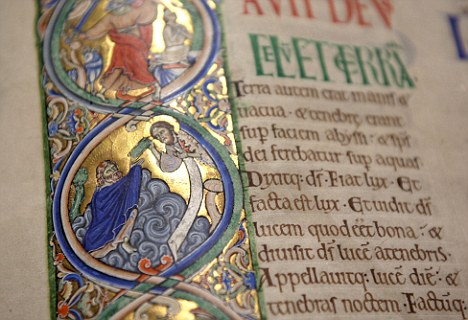 AVIT DEV
CELV̄ ET TERRA
Terra autem erat inanis &
uacua · & tenebre erant
sup faciem abyssi · & sp̄s
dei ferebatur sup aquas
Dixitq; d̄s · Fiat lux · Et
facta est lux · Et uidit d̄s
lucem quod eēt bona · &
diuisit d̄s lucē a tenebris ·
Appellauitq; lucē diē · &
tenebras noctem · Factum